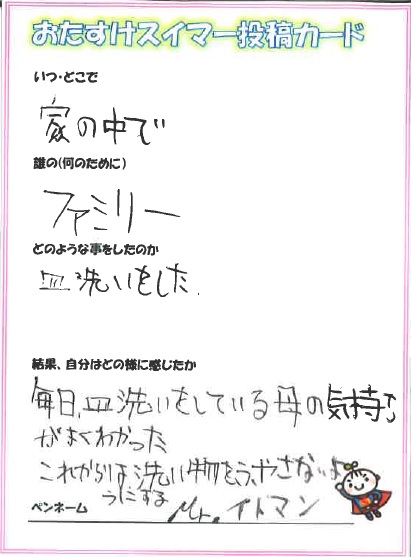 おたすけスイマー投稿カード
いつ・どこで
家の中で
誰の(何のために)
ファミリー
どのような事をしたのか
皿洗いをした.
結果、自分はどの様に感じたか
毎日、皿洗いをしている母の気持ち
がよくわかった
これからは洗い物をふやさないよ
うにする
ペンネーム
Mr. イトマン